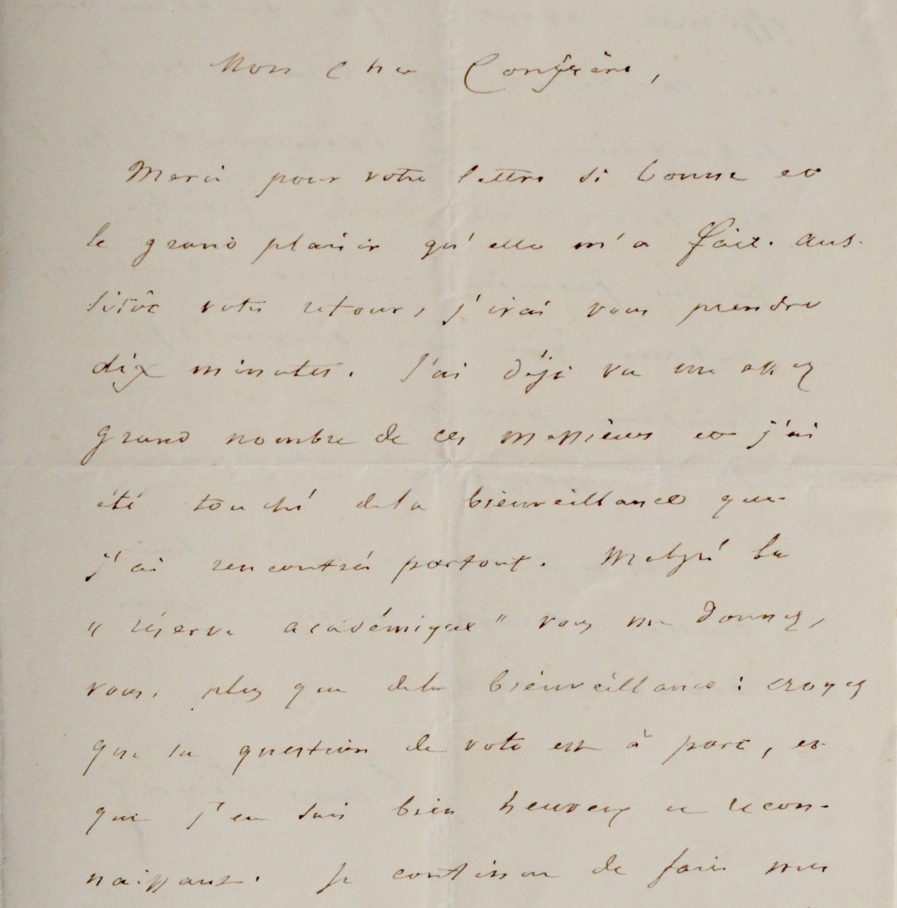 Mon cher Confrère,
Merci pour votre lettre si bonne et
le grand plaisir qu'elle m'a fait. Aus-
sitôt votre retour, j'irai vous prendre
dix minutes. J'ai déjà vu un assez
grand nombre de ces messieurs et j'ai
été touché de la bienveillance que
j'ai rencontrée partout. Malgré la
"réserve académique" vous me donnez,
vous, plus que de la bienveillance : croyez
que la question de vote est à part, et
que j'en suis bien heureux et recon-
naissant. Je continue de faire mes